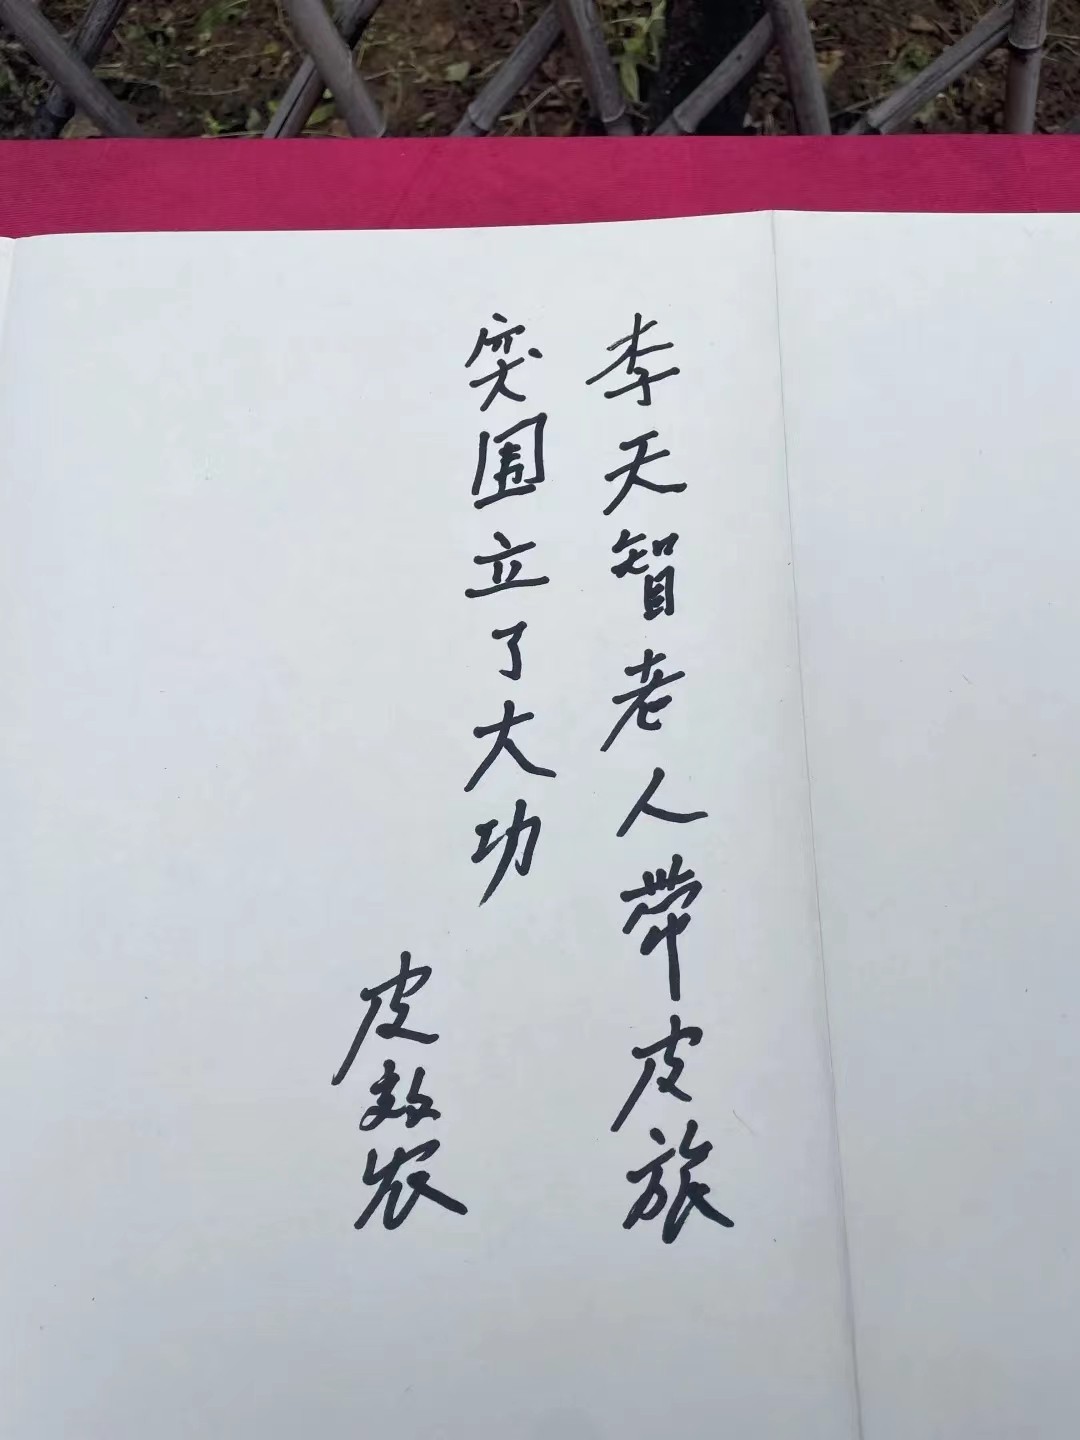 李天智老人带皮旅
突围立了大功
皮效农